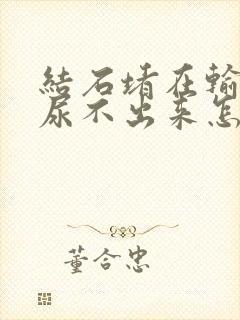 结石堵在输
尿不出来怎
董合忠